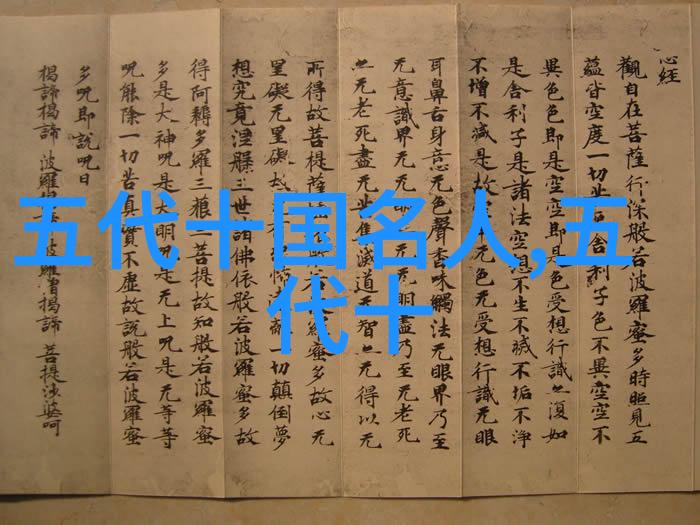 心经
觀自在菩薩行深般若波羅蜜多時照見五
蘊皆空度一切舍利子色不異空空不
異色色即是空空即是色受想行識亦復如
是舍利子是諸法空想不生不滅不垢不淨
不增不減是故无色无受想行識无眼
耳鼻舌身意无色聲香味觸法无眼界乃至
无意識界无无明无明盡乃至无老死
亦无老死盡无集滅道无智亦无得以无
所得故菩提薩蜜多故心无
罣礙无罣礙一切顛倒夢
想究竟涅槃三世諸佛依般若波羅蜜多故
得阿耨多羅三藐三菩提故知般若波羅蜜
多是大神呪是大明呪是无上呪是无等等
呪能除一切苦真實不虛故說般若波羅蜜
多呪即說呪曰
揭諦揭諦 波羅 波羅僧揭諦 菩提薩婆呵
五代十国名人,五
代十